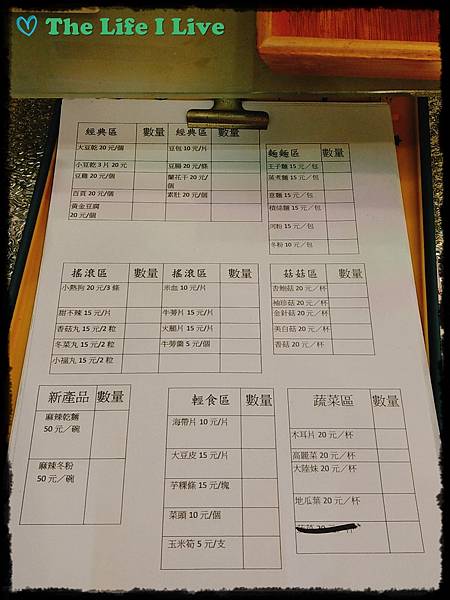 The Life I Live
經典區 數量 經典區 數量
大豆乾 20 元/個 豆包 10 元/片
小豆乾 3 片 20 元 豆腸 20 元/條
豆雞 20 元/個 蘭花干 20 元/個
百頁 20 元/個 素肚 20 元/個
黃金豆腐 20 元/個
麵麵區 數量
王子麵 15 元／包
蒸煮麵 15 元／包
意麵 15 元／包
河粉 15 元／包
冬粉 10 元／包
搖滾區 數量 搖滾區 數量
小熱狗 20 元/3 條 米血 10 元/片
甜不辣 15 元/片 牛蒡片 15 元/片
香菇丸 15 元/2 粒 火腿片 15 元/片
冬菜丸 15 元/2 粒 牛蒡簍 5 元/個
小福丸 15 元/2 粒
菇菇區 數量
杏鮑菇 20 元／杯
袖珍菇 20 元／杯
金針菇 20 元／杯
美白菇 20 元／杯
香菇 20 元／杯
新產品 數量
麻辣乾麵
50 元／碗
麻辣冬粉
50 元／碗
輕食區 數量
海帶片 10 元/片
大豆皮 15 元/片
芋粿條 15 元/塊
菜頭 10 元/個
玉米筍 5 元/支
蔬菜區 數量
木耳片 20 元／杯
高麗菜 20 元／杯
大陸妹 20 元／杯
地瓜葉 20 元／杯